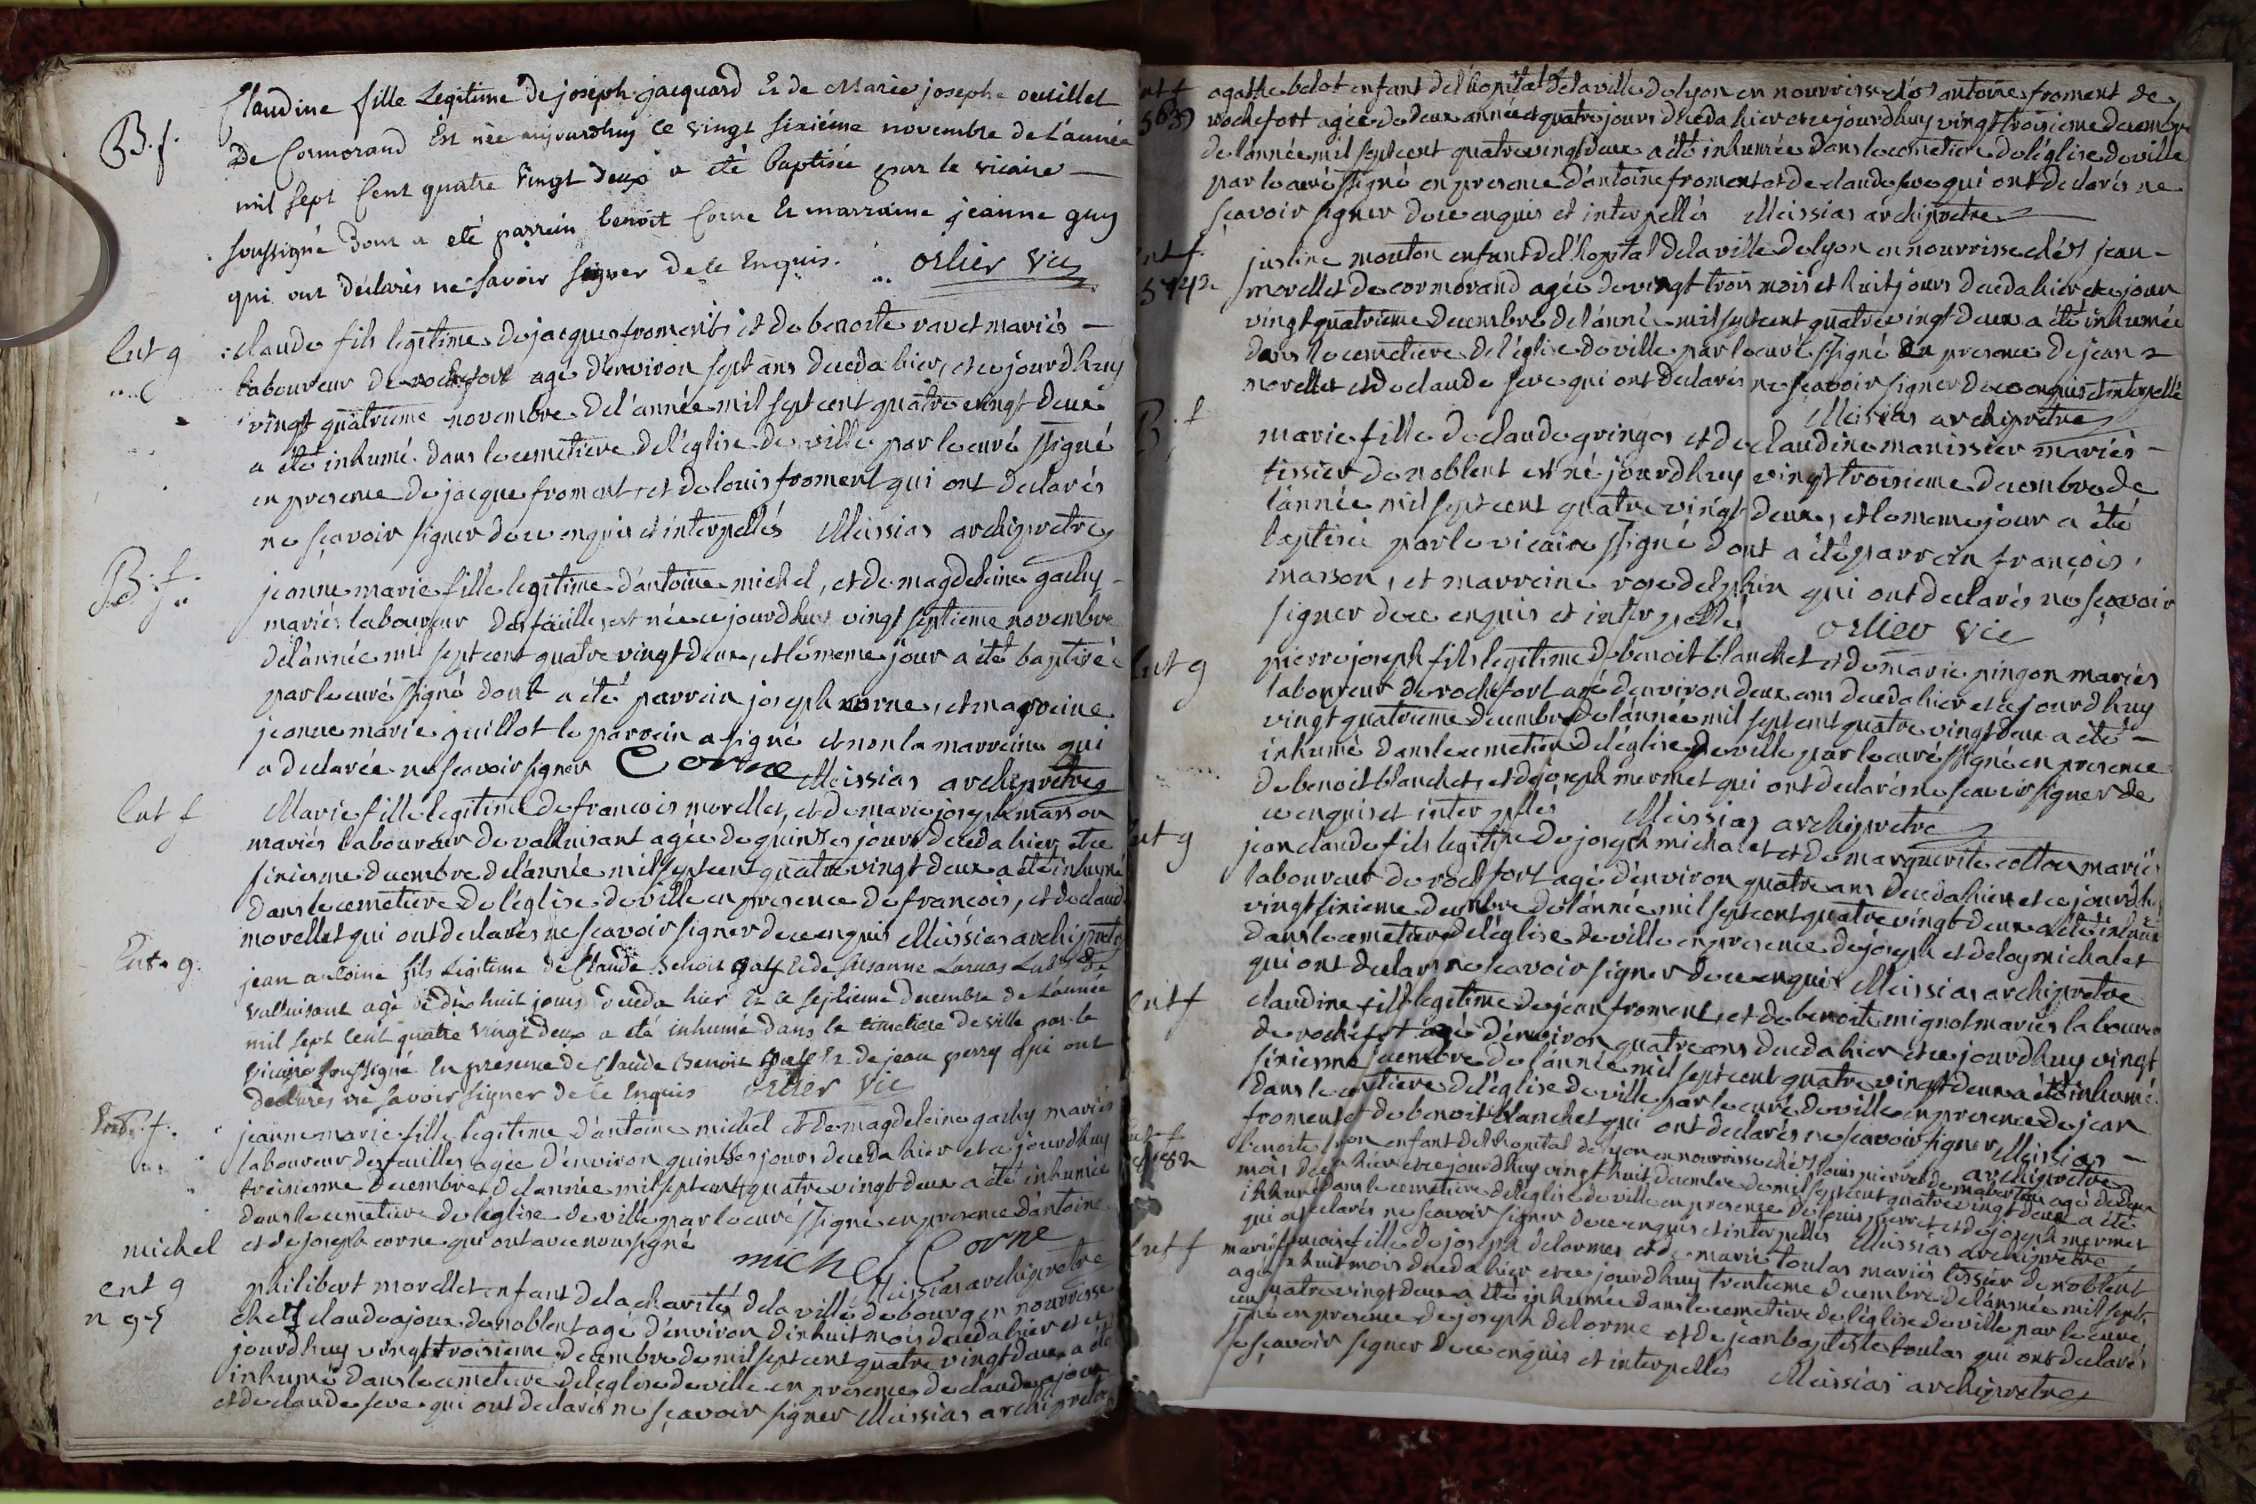 B. f.
Claudine fille Legitime de joseph jacquard Et de Marie josephe oeuillet
de Cormorand Est née aujourdhuy Ce vingt sixiéme novembre de l'année
mil sept Cent quatre vingt deux a été baptisée par le vicaire
soussigné dont a eté parrain benoit Corne Et marraine jeanne guy
qui ont déclarés ne savoir signer de ce Enquis. orlier vic
Ent g
claude fils legitime de jacques froment et de benoite ravet mariés
laboureur de rochefort agé d'environ sept ans decedá hier, et ce jourdhuy
vingt quatrieme novembre de l'année mil sept cent quatre vingt deux
a été inhumé dans le cemetiere de l'église de ville par le curé ssigné
en presence de jacque froment et de louis froment qui ont declarés
ne sçavoir signer de ce enquis et interpellés Meissias archipretre
B. f.
jeanne marie fille legitime d'antoine michel, et de magdeleine gachy
mariés laboureur des feuilles est née ce jourdhuy vingt septieme novembre
de l'année mil sept cent quatre vingt deux, et le meme jour a été baptisée
par le curé ssigné dont a été parrein joseph corne, et marreine
jeanne marie guillot le parrein a signé et non la marreine qui
a declarée ne scavoir signer Corne Meissias archipretre
Ent f
Marie fille legitime de francois morellet, et de marie joseph masson
mariés laboureur de valluisant agée de quinse jours deceda hier et ce
sixieme decembre de l'année mil sept cent quatre vingt deux a été inhumé
dans le cemetiere de l'église de ville en presence de francois, et de claude
morellet qui ont declarés ne scavoir signer de ce enquis Meissias archipretre
Ent. g.
jean antoine fils Legitime de Claude Benoit Et de susanne
valluisant agé de dix huit jours deceda hier Et ce septieme decembre de l'année
mil sept Cent quatre vingt deux a été inhumé dans le cimetiere de ville par le
vicaire soussigné En presence de Claude Benoit Et de jean perry qui ont
declarés ne savoir signer de ce Enquis orlier vic
Ent. f.
jeanne marie fille legitime d'antoine michel et de magdeleine gachy mariés
laboureur des feuilles agée d'environ quinse jours deceda hier et ce jourdhuy
treisieme decembre de l'année mil sept cent quatre vingt deux a été inhumée
dans le cemetiere de l'église de ville par le curé ssigné en presence d'antoine
michel
et de joseph corne qui ont avec nous signé michel Corne
Meissias archipretre
ent g
philibert morellet enfant de la charité de la ville de bourg en nourrisse
n 95
chez claude ajoux de noblent agé d'environ dixhuit mois deceda hier et ce
jourdhuy vingt troisieme decembre de mil sept cent quatre vingt deux a été
inhumé dans le cemetiere de l'eglise de ville en presence de claude ajoux
et de claude seve qui ont declarés ne sçavoir signer Meissias archipretre
ent f
agathe belot enfant de l'hopital de la ville de lyon en nourrisse chés antoine froment de
rochefort agée de deux année et quatre jours deceda hier et ce jourdhuy vingt troisieme decembre
de l'année mil sept cent quatre vingt deux a été inhumée dans le cemetiere de l'église de ville
par le curé ssigné en presence d'antoine froment et de claude seve qui ont declarés ne
sçavoir signer de ce enquis et interpellés Meissias archipretre
ent f.
justine mouton enfant de l'hopital de la ville de lyon en nourrisse chés jean
morellet de cormorand agée de vingt trois mois et huit jours deceda hier et ce jour
vingt quatrieme decembre de l'anné mil sept cent quatre vingt deux a été inhumée
dans le cemetiere de l'église de ville par le curé ssigné en presence de jean
morellet et de claude seve qui ont declarés ne sçavoir signer de ce enquis et interpellé
Meissias archipretre
B. f
marie fille de claude gringos et de claudine manissier mariés
tissier de noblent est né jourdhuy vingt troisieme decembre de
l'année mil sept cent quatre vingt deux, et le meme jour a été
baptisée par le vicaire ssigné dont a été parrein françois
masson, et marreine rose delphin qui ont declarés ne sçavoir
signer de ce enquis et interpellés orlier vic
Ent g
pierre joseph fils legitime de benoit blanchet et de marie pingon mariés
laboureur de rochefort agé d'environ deux ans deceda hier et ce jourdhuy
vingt quatrieme decembre de l'année mil sept cent quatre vingt deux a été
inhumé dans le cemetiere de l'église de ville par le curé ssigné en presence
de benoit blanchet, et de joseph mermet qui ont declarés ne scavoir signer de
ce enquis et interpellés Meissias archipretre
Ent g
jean claude fils legitime de joseph michalet et de marguerite cotton mariés
laboureur de rochefort agé d'environ quatre ans deceda hier et ce jourdhuy
vingt sixieme decembre de l'année mil sept cent quatre vingt deux a été inhumé
dans le cemetiere de l'église de ville en presence de joseph et de loy michalet
qui ont declarés ne scavoir signer de ce enquis Meissias archipretre
Ent f
claudine fille legitime de jean froment, et de benoite mignot mariés laboureur
de rochefort agée d'environ quatre ans deceda hier et ce jourdhuy vingt
sixieme decembre de l'année mil sept cent quatre vingt deux a été inhumé
dans le cemetiere de l'église de ville par le curé de ville en presence de jean
froment et de benoit blanchet qui ont declarés ne scavoir signer Meissias
archipretre
Ent f
benoite enfant de l'hopital de lyon en nourrisse chés louis pierret de agé de deux
mois deceda hier et ce jourdhuy vingt huit decembre de mil sept cent quatre vingt deux a été
inhumé dans le cemetiere de l'église de ville en presence de louis pierret et de joseph mermet
qui ont declarés ne scavoir signer de ce enquis et interpellés Meissias archipretre
Ent f
marie francoise fille de joseph delormes et de marie toulas mariés tissier de noblent
agée de huit mois deceda hier et ce jourdhuy trentieme decembre de l'année mil sept
cent quatre vingt deux a été inhumée dans le cemetiere de l'église de ville par le curé
ssigné en presence de joseph delorme et de jean baptiste toulas qui ont declarés
ne sçavoir signer de ce enquis et interpellés Meissias archipretre